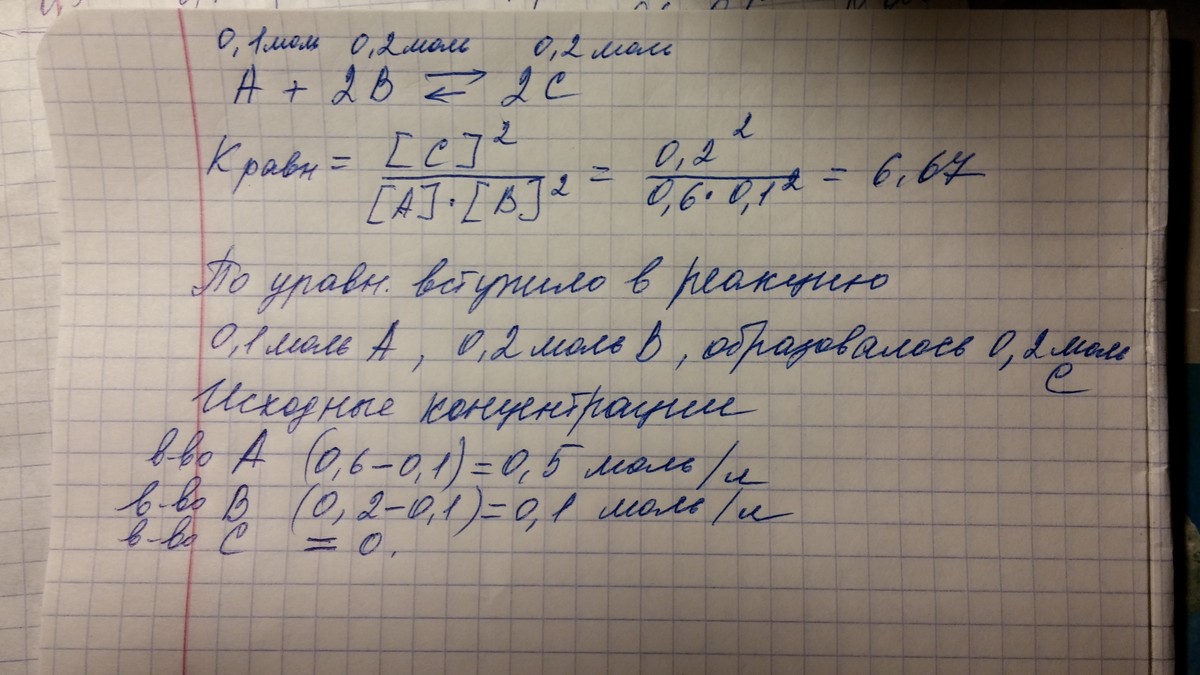 0,1моль 0,2моль 0,2моль
A + 2B ⇄ 2C
K равн = [C]² / [A]·[B]² = 0,2² / 0,6·0,1² = 6,67
По уравн. вступило в реакцию
0,1моль A, 0,2моль B, образовалось 0,2моль
C
Исходные концентрации
в-во A (0,6-0,1)=0,5 моль/л
в-во B (0,2-0,1)=0,1 моль/л
в-во C = 0.